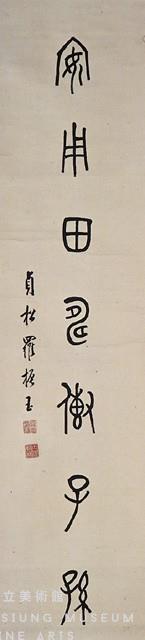 安用田邑傲子孫
貞松羅振玉
立美術館
SIUNG MUSEUM
INE ARTS